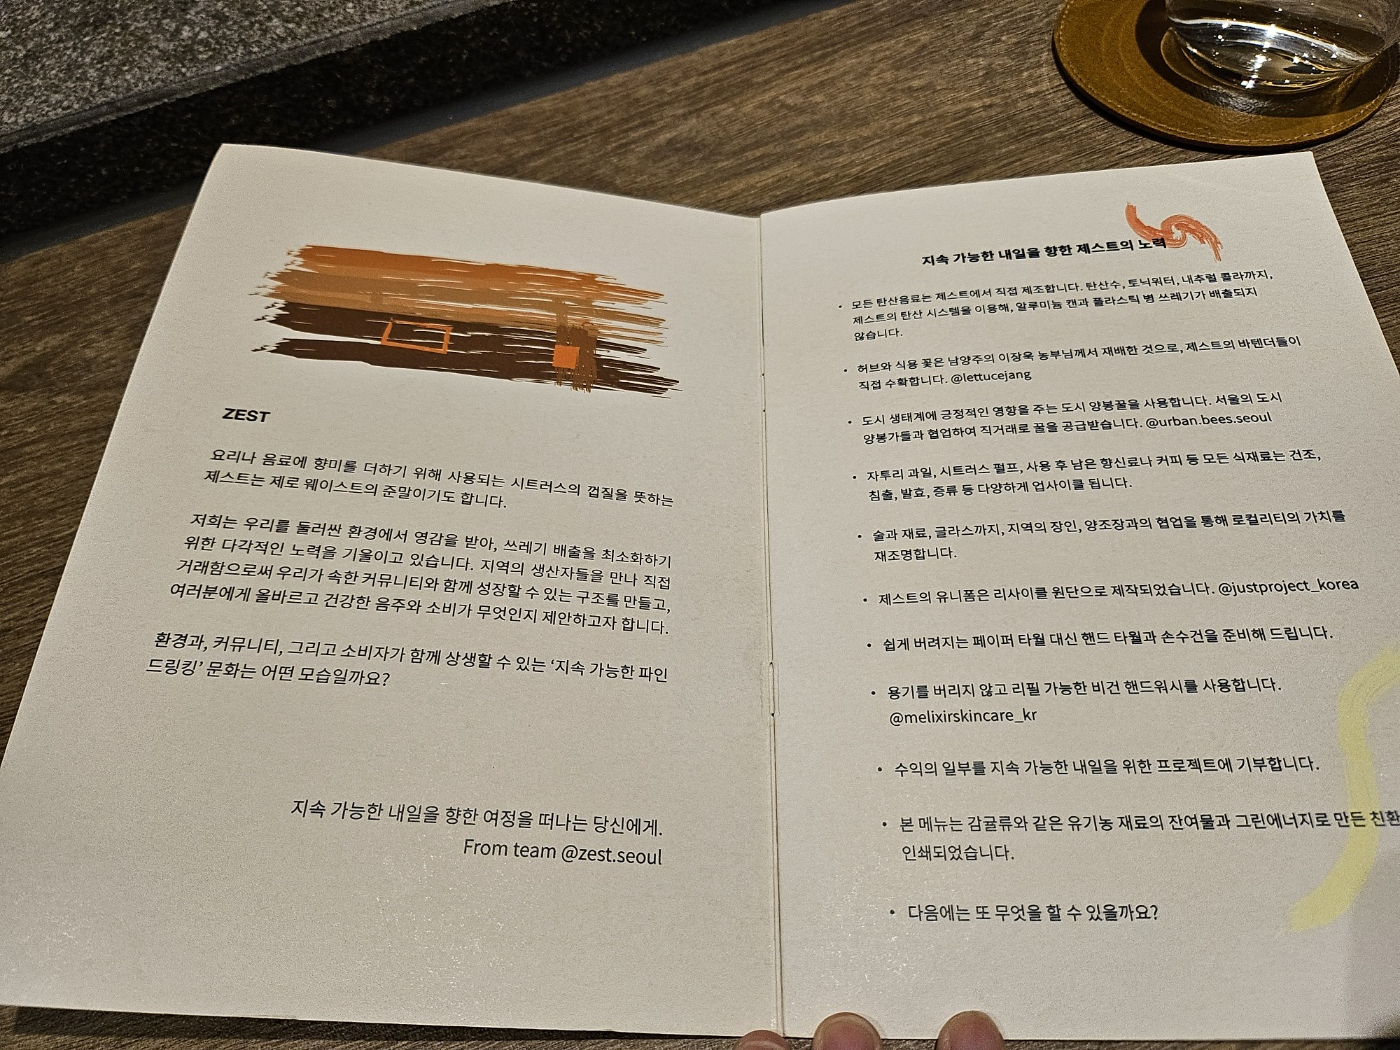 ZEST
요리나 음료에 향미를 더하기 위해 사용되는 시트러스의 껍질을 뜻하는
제스트는 제로 웨이스트의 준말이기도 합니다.
저희는 우리를 둘러싼 환경에서 영감을 받아, 쓰레기 배출을 최소화하기
위한 다각적인 노력을 기울이고 있습니다. 지역의 생산자들을 만나 직접
거래함으로써 우리가 속한 커뮤니티와 함께 성장할 수 있는 구조를 만들고,
여러분에게 올바르고 건강한 음주와 소비가 무엇인지 제안하고자 합니다.
환경과, 커뮤니티, 그리고 소비자가 함께 상생할 수 있는 ‘지속 가능한 파인
드링킹’ 문화는 어떤 모습일까요?
지속 가능한 내일을 향한 여정을 떠나는 당신에게.
From team @zest.seoul
지속 가능한 내일을 향한 제스트의 노력
• 모든 탄산음료는 제스트에서 직접 제조합니다. 탄산수, 토닉워터, 내추럴 콜라까지,
제스트의 탄산 시스템을 이용해, 알루미늄 캔과 플라스틱 병 쓰레기가 배출되지
않습니다.
• 허브와 식용 꽃은 남양주의 이장욱 농부님께서 재배한 것으로, 제스트의 바텐더들이
직접 수확합니다. @lettucejang
• 도시 생태계에 긍정적인 영향을 주는 도시 양봉꿀을 사용합니다. 서울의 도시
양봉가들과 협업하여 직거래로 꿀을 공급받습니다. @urban.bees.seoul
• 자투리 과일, 시트러스 펄프, 사용 후 남은 향신료나 커피 등 모든 식재료는 건조,
침출, 발효, 증류 등 다양하게 업사이클 됩니다.
• 술과 재료, 글라스까지, 지역의 장인, 양조장과의 협업을 통해 로컬리티의 가치를
재조명합니다.
• 제스트의 유니폼은 리사이클 원단으로 제작되었습니다. @justproject_korea
• 쉽게 버려지는 페이퍼 타월 대신 핸드 타월과 손수건을 준비해 드립니다.
• 용기를 버리지 않고 리필 가능한 비건 핸드워시를 사용합니다.
@melixirskincare_kr
• 수익의 일부를 지속 가능한 내일을 위한 프로젝트에 기부합니다.
• 본 메뉴는 감귤류와 같은 유기농 재료의 잔여물과 그린에너지로 만든 친환
인쇄되었습니다.
• 다음에는 또 무엇을 할 수 있을까요?